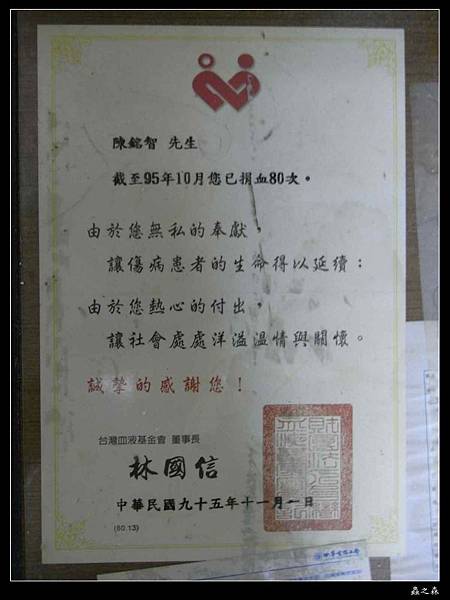 陳銘智 先生
截至95年10月您已捐血80次。
由於您無私的奉獻，
讓傷病患者的生命得以延續；
由於您熱心的付出，
讓社會處處洋溢溫情與關懷。
誠摯的感謝您！
台灣血液基金會 董事長
林國信
中華民國九十五年十一月一日
(80.13)
蟲之森